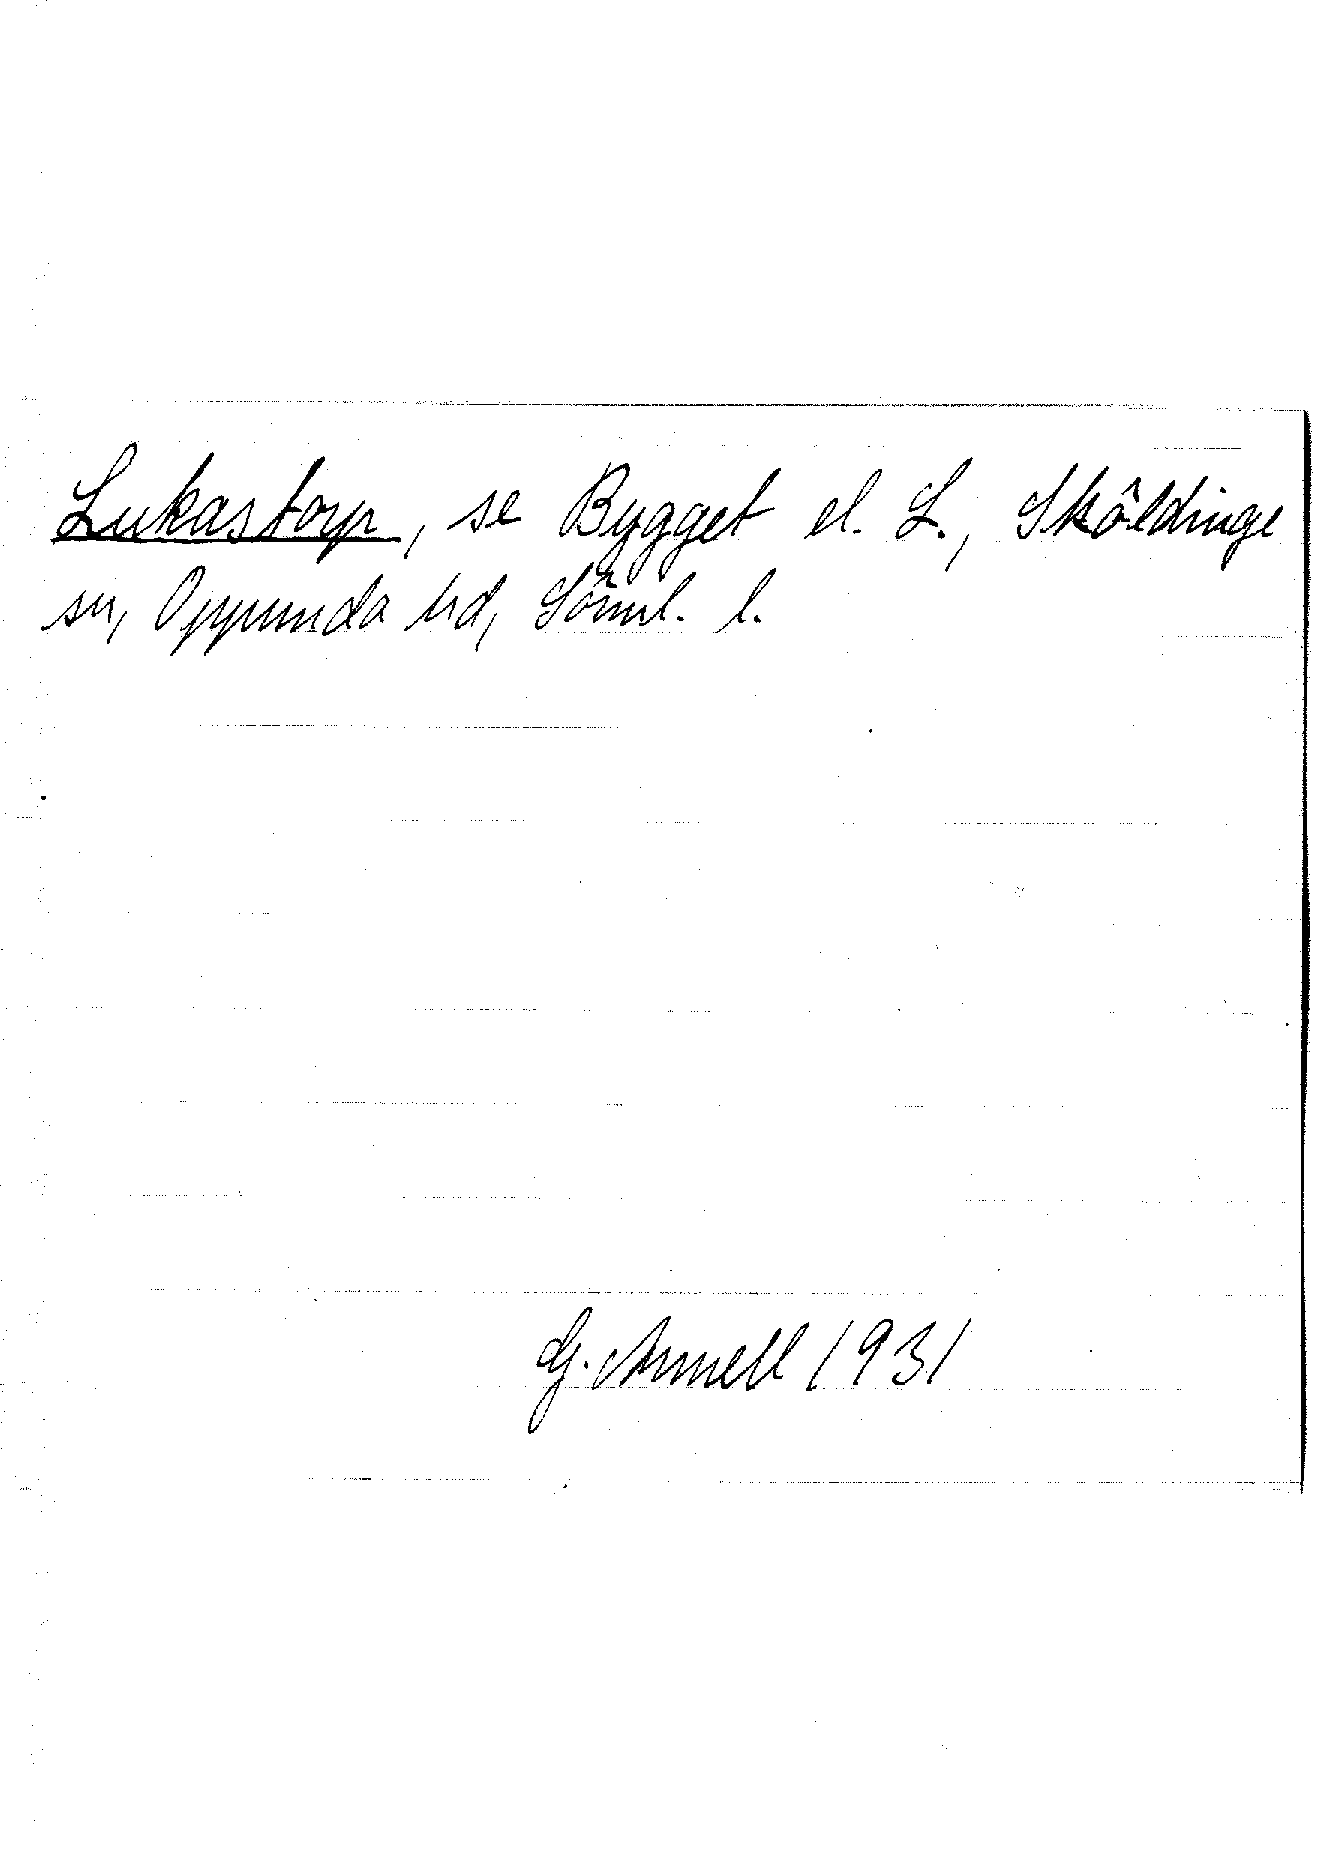 Lukastorp, se Bygget el. L., Sköldinge
sn, Oppunda hd, Söml. l.
G. Annell 1931